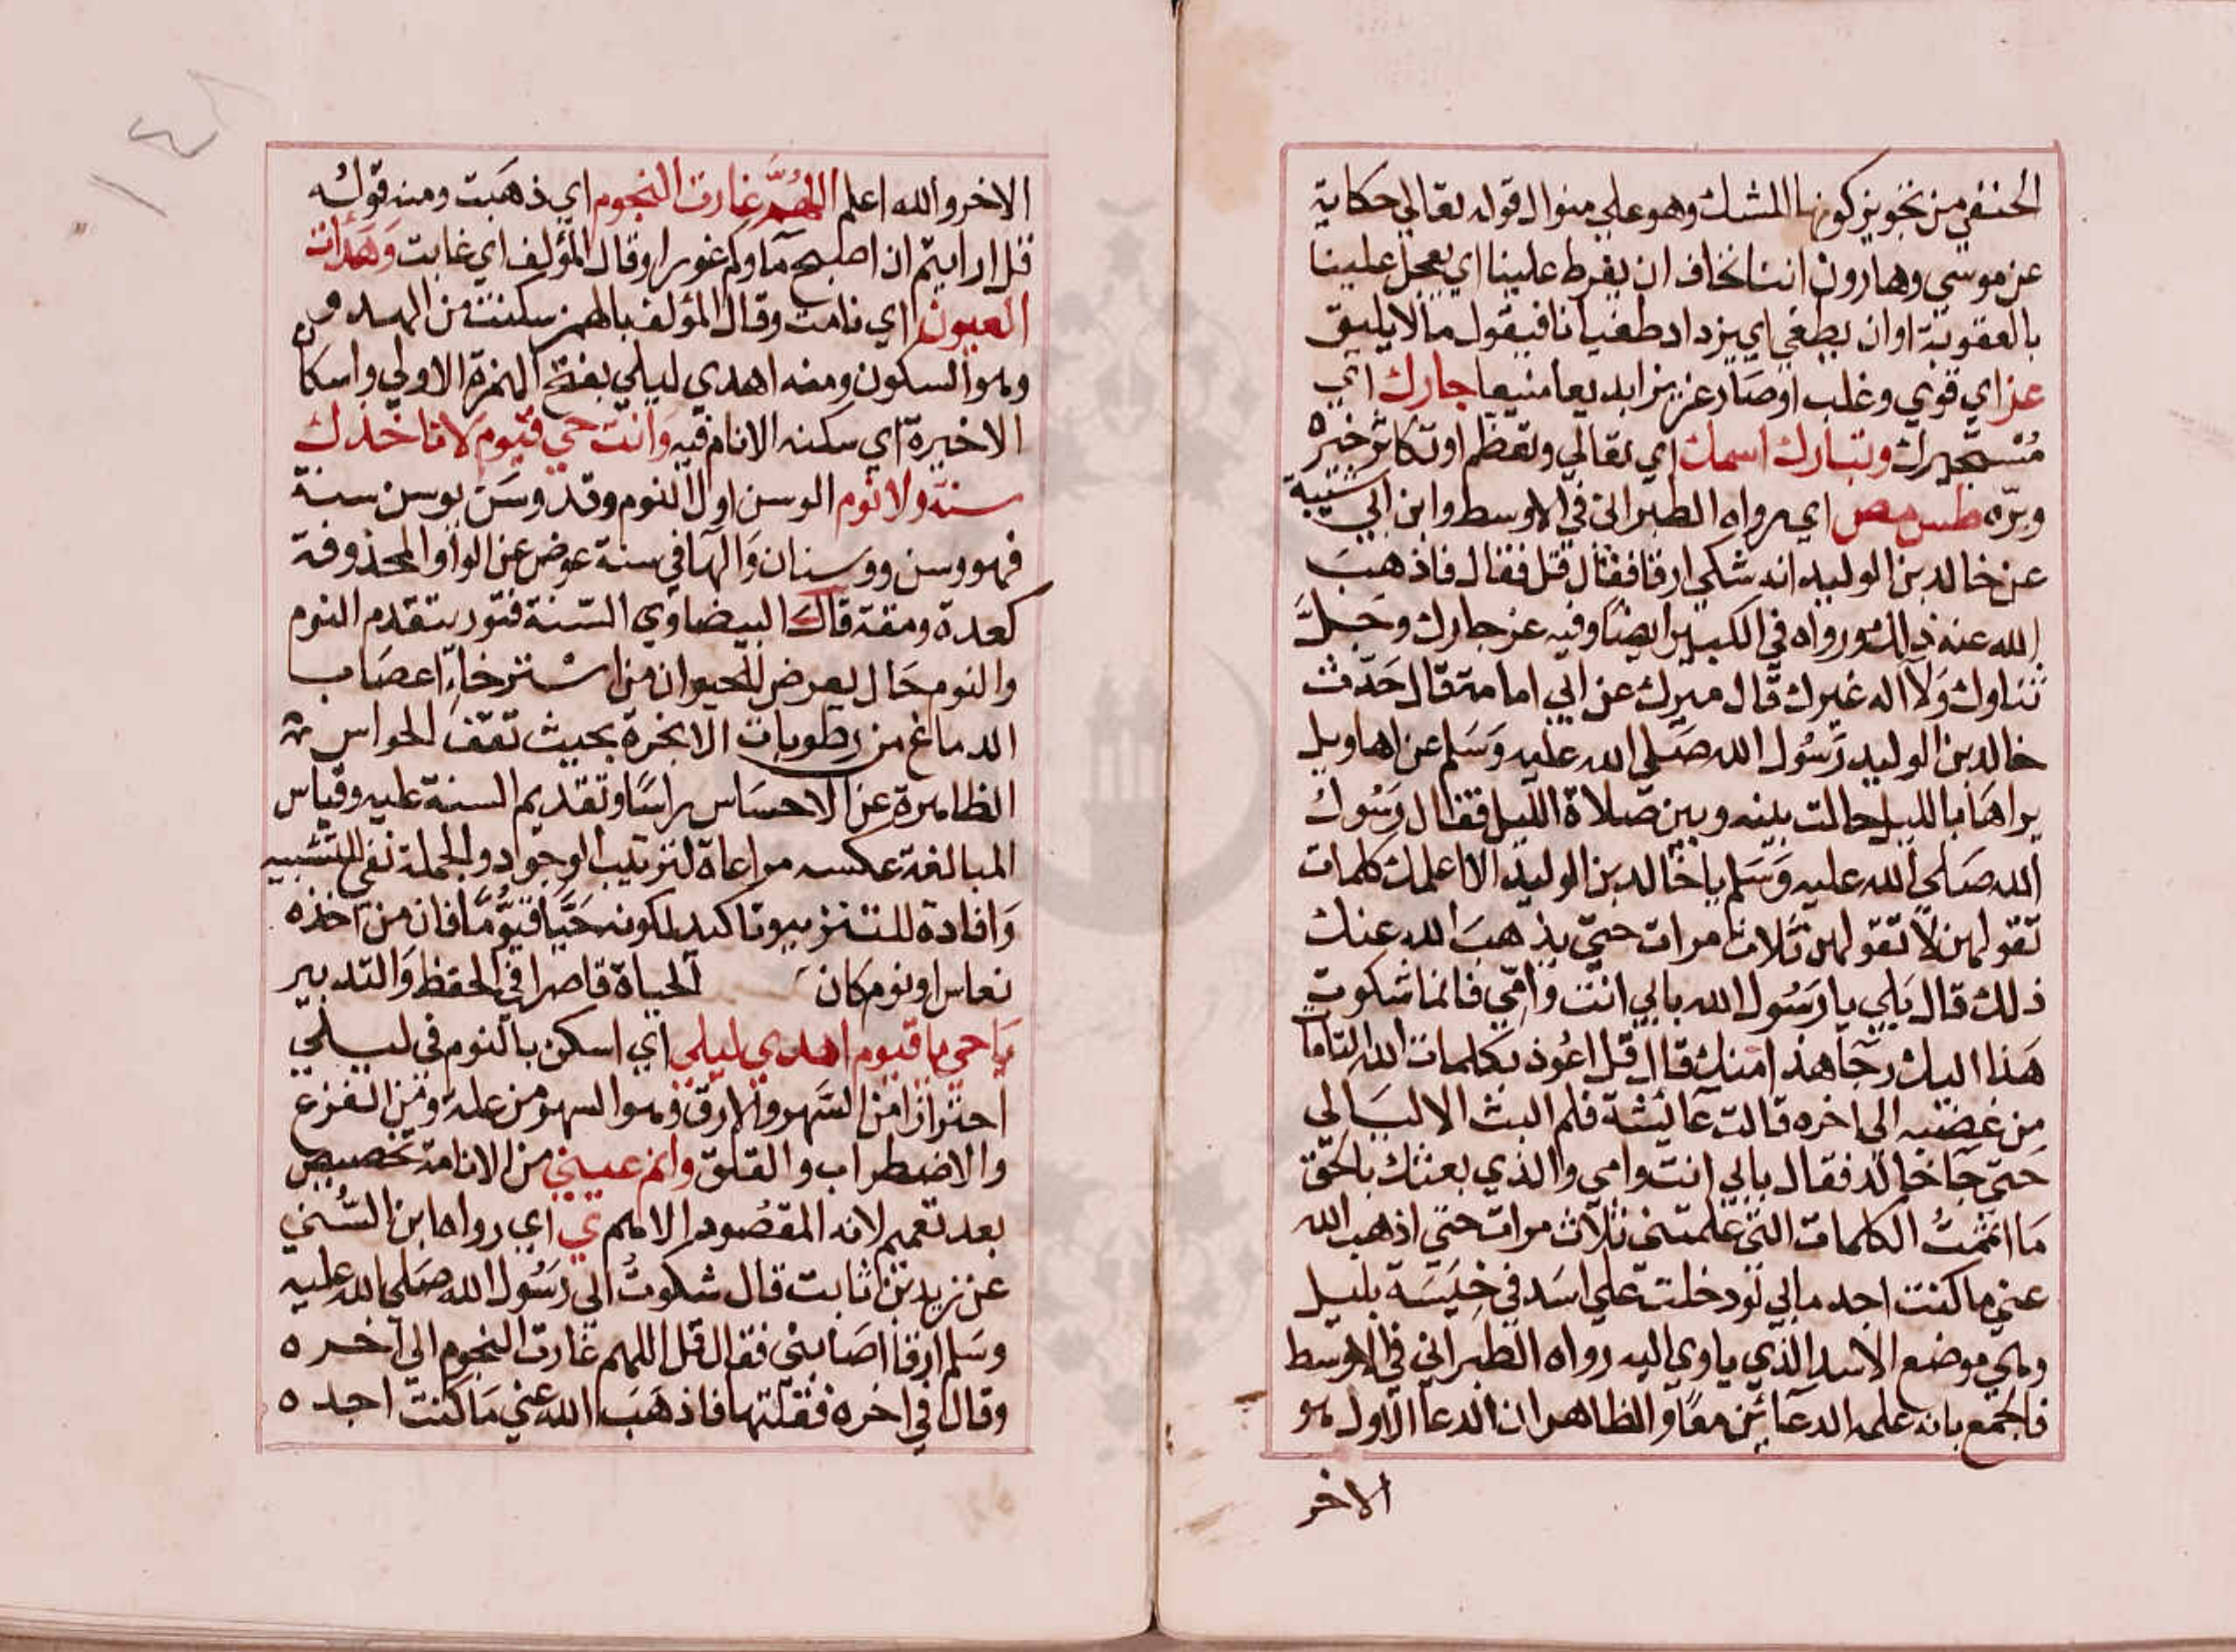 الحنفي من تجويز كونها للشك وهو علي منوال قوله تعالي حكاية
عن موسي وهارون اننا نخاف ان يفرط علينا اي يعجل علينا
بالعقوبة او ان يطغي اي يزداد طغيانا فيقول ما لا يليق
عز اي قوي وغلب او صار عزيزا بديعا منيعا جارك اي
مُستجيرك وتبارك اسمك اي تعالي وتعظم او تكاثر خيره
وبرّه طس مص اي رواه الطبراني في الاوسط وابن ابي شيبة
عن خالد بن الوليد انه شكي ارقا فقال قل فقال فاذهبَ
الله عنه ذلك ورواه في الكبير ايضا وفيه عز جارك وجَلَّ
ثناوك وَلا اله غيرك قال ميرك عن ابي امامة قال حَدّث
خالد بن الوليد رَسُول الله صَلي الله عليه وَسَلم عن اهاويل
يراهَا بالليل حالت بينه وبين صلاة الليل فقال رَسُول
الله صَلي الله عليه وَسَلم يا خالد بن الوليد الا اعلمك كلمات
تقولهن لا تقولهن ثلاث مرات حتي يذهبَ الله عنك
ذلك قال بَلي يا رَسُول الله بابي انت وامّي فانما شكوت
هَذا اليك رجآ هذا منك قال قل اعُوذ بكلمات الله التاما
مِن غضبه الي اخره قالت عائشة فلم البث الا ليَالي
حَتي جَا خالد فقال بابي انت وامي والذي بعثك بالحَق
مَا اتممتُ الكلمات التي علمتني ثلاث مرات حتي اذهب الله
عني ما كنت اجد ما بي لو دخلت علي اسَد في خِيسَة بليل
وهي موضع الاسد الذي ياوي اليه رواه الطبراني في الاوسط
فالجمع بانه علمه الدعائين معًا والظاهر ان الدعا الاول هو
الاخر
الاخر والله اعلم اللهُمَّ غارت النجوم اي ذهَبت ومنه قولُه
قل ارايتم ان اصبح مَاوكم غورا وقال المؤلف اي غابت وَهَدأت
العيون اي نامت وقال المؤلف بالهمز سكنت من الهدو
وهو السكون ومنه اهدي ليلي بفتح الهمزة الاولي واسكان
الاخيرة اي سكنه الانام فيه وانت حي قيوم لا تاخذك
سنة ولا نوم الوسن اول النوم وقد وسَن يوسن سنة
فهو وسن ووسنان وَالها في سنة عوض عن الواو المحذوفة
كعدة ومقة قال البيضاوي السّنة فتور يتقدم النوم
والنوم حَال يعرض للحيوان من استرخاء اعصَاب
الدماغ من رطوبات الابخرة بحيث تقف الحواس
الظاهرة عن الاحسَاس راسًا وتقديم السنة عليه وقياس
المبالغة عكسه مراعاة لترتيب الوجود والجملة نفي للتشبيه
وَافادة للتنزيه وتاكيد لكونه حَيَّا قيُّومًا فان من اخذه
نعاس او نوم كان الحياة قاصرا في الحفظ وَالتدبير
يَا حي يا قيوم اهدي ليلي اي اسكن بالنوم في ليلي
احترازا من السَّهر والارق وهو السهر من علة ومن الفزع
والاضطراب والقلق وانم عيني من الانامة تخصيص
بعد تعميم لانه المقصُود الاهم ي اي رواه ابن السُّني
عن زيد بن ثابت قال شكوتُ الي رَسُول الله صَلي الله عليه
وسَلم ارقا اصَابني فقال قل اللهم غارت النجوم الي اخره
وقال في اخره فقلتها فاذهَبَ الله عني مَا كنت اجد